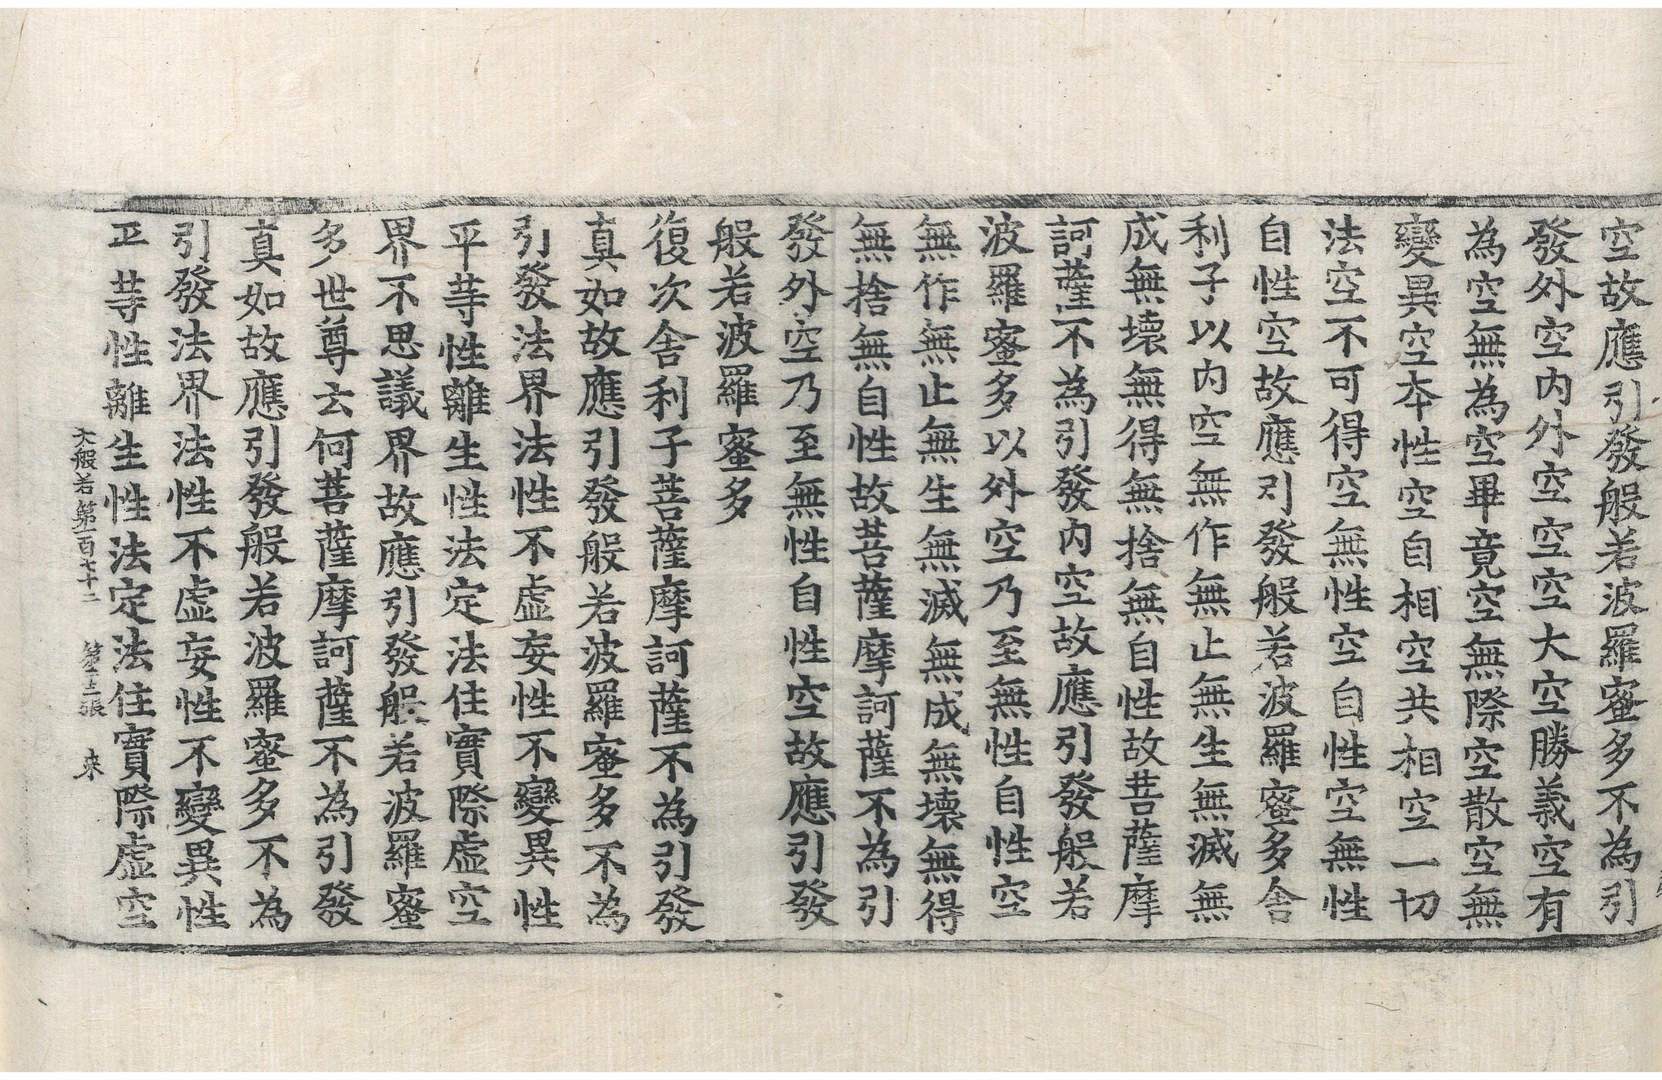 空故應引發般若波羅蜜多不為引
發外空內外空空空大空勝義空有
為空無為空畢竟空無際空散空無
變異空本性空自相空共相空一切
法空不可得空無性空自性空無性
自性空故應引發般若波羅蜜多舍
利子以內空無作無止無生無滅無
成無壞無得無捨無自性故菩薩摩
訶薩不為引發內空故應引發般若
波羅蜜多以外空乃至無性自性空
無作無止無生無滅無成無壞無得
無捨無自性故菩薩摩訶薩不為引
發外空乃至無性自性空故應引發
般若波羅蜜多
復次舍利子菩薩摩訶薩不為引發
真如故應引發般若波羅蜜多不為
引發法界法性不虛妄性不變異性
平等性離生性法定法住實際虛空
界不思議界故應引發般若波羅蜜
多世尊云何菩薩摩訶薩不為引發
真如故應引發般若波羅蜜多不為
引發法界法性不虛妄性不變異性
平等性離生性法定法住實際虛空
大般若第一百七十二 第十三張 來